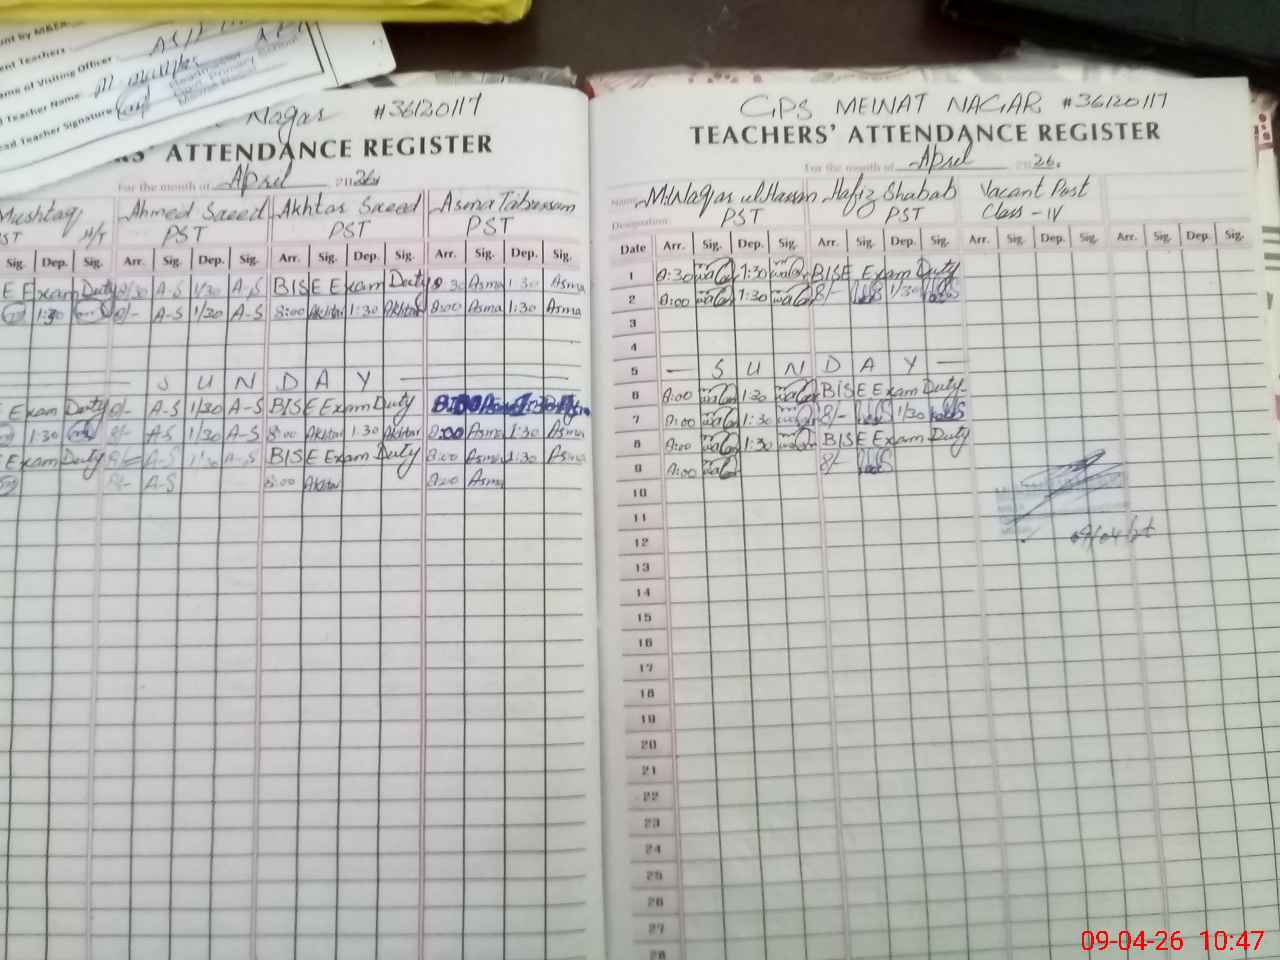 nt by M&ER
ent Teachers
ame of Visiting Officer
d Teacher Name
ead Teacher Signature
Nagar #36120117
RS' ATTENDANCE REGISTER
For the month of April 2026
Mushtaq Ahmed Saeed Akhtar Saeed Asma Tabussam
PST H/T PST PST PST
Sig. Dep. Sig. Arr. Sig. Dep. Sig. Arr. Sig. Dep. Sig. Arr. Sig. Dep. Sig.
E Exam Duty 8/30 A-S 1/30 A-S BISE Exam Duty 8 30 Asma 1 30 Asma
1:30 8/- A-S 1/30 A-S 8:00 Akhtar 1:30 Akhtar 8:00 Asma 1:30 Asma
S U N D A Y
E Exam Duty 8/- A-S 1/30 A-S BISE Exam Duty 8:00 Asma 1:30
1:30 8/- A-S 1/30 A-S 8:00 Akhtar 1:30 Akhtar 8:00 Asma 1:30 Asma
E Exam Duty 8/- A-S 1/30 A-S BISE Exam Duty 8:00 Asma 1:30 Asma
8/- A-S 8:00 Akhtar 8:00 Asma
GPS MEINAT NAGAR #36120117
TEACHERS' ATTENDANCE REGISTER
For the month of April 2026.
Name M.Waqar ul Hassan Hafiz Shabab Vacant Post
Designation PST PST Class - IV
Date Arr. Sig. Dep. Sig. Arr. Sig. Dep. Sig. Arr. Sig. Dep. Sig. Arr. Sig. Dep. Sig.
1 8:30 1:30 BISE Exam Duty
2 8:00 1:30 8/- 1/30
3
4
5 S U N D A Y
6 8:00 1:30 BISE Exam Duty
7 8:00 1:30 8/- 1/30
8 8:00 1:30 BISE Exam Duty
9 8:00 8/-
10
11
12 09/04/26
13
14
15
16
17
18
19
20
21
22
23
24
25
26
27
28
09-04-26 10:47